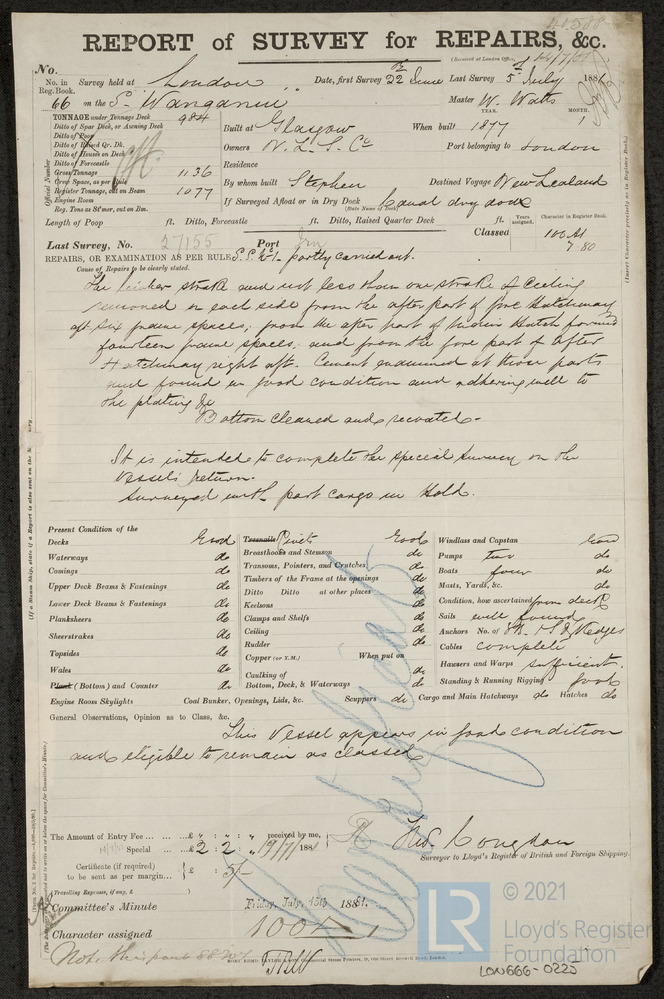 REPORT of SURVEY for REPAIRS, &c.
(Received at London Office,
No.
No. in Reg. Book. Survey held at London Date, first Survey 22nd June Last Survey 5th July 1881
66 on the S. Wanganui Master W. Watts
TONNAGE under Tonnage Deck 984
YEAR. MONTH.
Ditto of Spar Deck, or Awning Deck
Built at Glasgow When built 1877
Ditto of Poop
Ditto of Raised Qr. Dk.
Owners N. Z. S. Co Port belonging to London
Ditto of Houses on Deck
Ditto of Forecastle
Residence
Gross Tonnage 1136
Crew Space, as per Rule
By whom built Stephen Destined Voyage New Zealand
Register Tonnage, cut on Beam 1077
Engine Room
If Surveyed Afloat or in Dry Dock Canal dry dock
(State Name of Dock)
Reg. Tons as St'mer, cut on Bm.
Official Number
Length of Poop ft. Ditto, Forecastle ft. Ditto, Raised Quarter Deck ft.
Years assigned. Character in Register Book.
Classed 100 A1
7 80
Last Survey, No. 27155 Port
REPAIRS, OR EXAMINATION AS PER RULE, S.S. No 1. partly carried out.
Cause of Repairs to be clearly stated.
The limber strake and not less than one strake of Ceiling
removed on each side from the after part of fore Hatchway
aft six frame spaces; from the after part of Main Hatch forward
fourteen frame spaces, and from the fore part of After
Hatchway right aft. Cement examined at those parts
and found in good condition and adhering well to
the plating &c
Bottom cleaned and recoated.
It is intended to complete the special survey on the
Vessel's return.
Surveyed with part cargo in Hold.
Present Condition of the
Decks Good
Waterways do
Comings do
Upper Deck Beams & Fastenings do
Lower Deck Beams & Fastenings do
Planksheers do
Sheerstrakes do
Topsides do
Wales do
Plank (Bottom) and Counter do
Engine Room Skylights
Treenails Rivets Good
Breasthooks and Stemson do
Transoms, Pointers, and Crutches do
Timbers of the Frame at the openings do
Ditto Ditto at other places do
Keelsons do
Clamps and Shelfs do
Ceiling do
Rudder do
Copper (or Y.M.) When put on
Caulking of
Bottom, Deck, & Waterways do
Coal Bunker, Openings, Lids, &c. Scuppers do
Windlass and Capstan Good
Pumps two do
Boats four do
Masts, Yards, &c. do
Condition, how ascertained from deck
Sails well found
Anchors No. of
Cables complete
Hawsers and Warps sufficient.
Standing & Running Rigging good
Cargo and Main Hatchways do Hatches do
General Observations, Opinion as to Class, &c.
This Vessel appears in good condition
and eligible to remain as classed
The Amount of Entry Fee ... ... ...£ " : " : " received by me,
Special ...£ 2 : 2 : " 19/7/1881
Certificate (if required) to be sent as per margin... £ : 5/-
(Travelling Expenses, if any, £ )
Thos. Congdon
Surveyor to Lloyd's Register of British and Foreign Shipping.
Committee's Minute Friday, July 15th 1881.
Character assigned 100 A 1
Note this part
© 2021
LR
Lloyd's Register
Foundation
LON666-0225